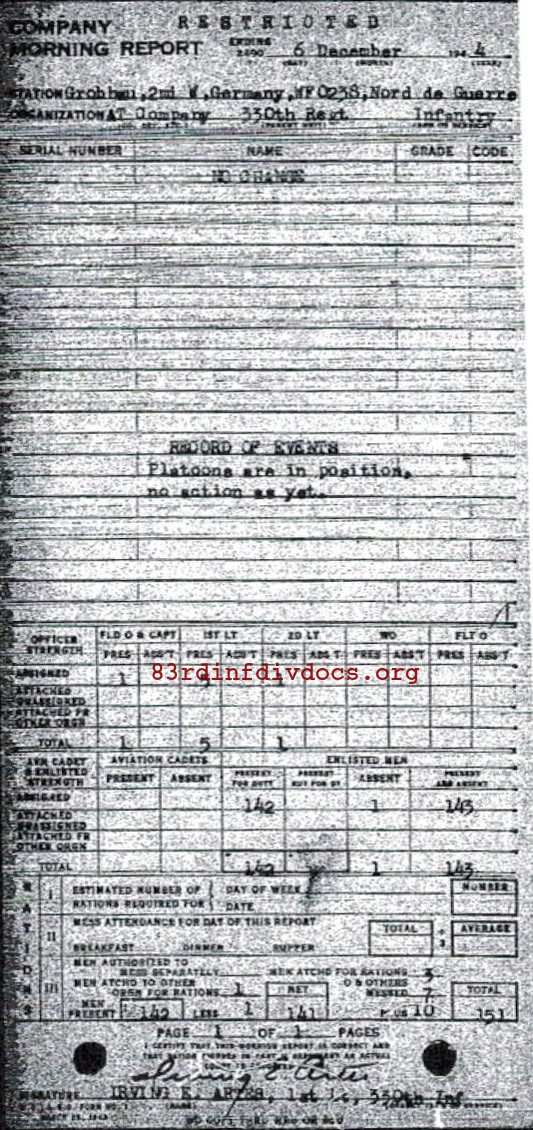 RESTRICTED
COMPANY
MORNING REPORT ENDING 2400 6 December 194 4
(DAY) (MONTH) (YEAR)
STATION Grobhau, 2mi W, Germany, WF 0238, Nord de Guerre
ORGANIZATION AT Company 330th Regt. Infantry
SERIAL NUMBER NAME GRADE CODE
NO CHANGE
RECORD OF EVENTS
Platoons are in position,
no action as yet.
OFFICER STRENGTH FLD O & CAPT 1ST LT 2D LT WO FLT O
PRES ABS'T PRES ABS'T PRES ABS'T PRES ABS'T PRES ABS'T
ASSIGNED 1 5 1
83rdinfdivdocs.org
ATTACHED
UNASSIGNED
ATTACHED FR
OTHER ORGN
TOTAL 1 5 1
AVN CADET & ENLISTED STRENGTH AVIATION CADETS ENLISTED MEN
PRESENT ABSENT PRESENT FOR DUTY PRESENT NOT FOR DY ABSENT PRESENT AND ABSENT
ASSIGNED 142 1 143
ATTACHED
UNASSIGNED
ATTACHED FR
OTHER ORGN
TOTAL 142 1 143
RATIONS
I ESTIMATED NUMBER OF RATIONS REQUIRED FOR { DAY OF WEEK NUMBER
DATE
II MESS ATTENDANCE FOR DAY OF THIS REPORT TOTAL ÷ 3 AVERAGE
BREAKFAST DINNER SUPPER
III MEN AUTHORIZED TO
MESS SEPARATELY MEN ATCHD FOR RATIONS 3
MEN ATCHD TO OTHER ORGN FOR RATIONS 1 NET O & OTHERS MESSED 7 TOTAL
MEN PRESENT 142 LESS 1 141 PLUS 10 151
PAGE 1 OF 1 PAGES
I CERTIFY THAT THIS MORNING REPORT IS CORRECT AND
Irving E Artes
SIGNATURE IRVING E. ARTES, 1st Lt, 330th Inf
(NAME)